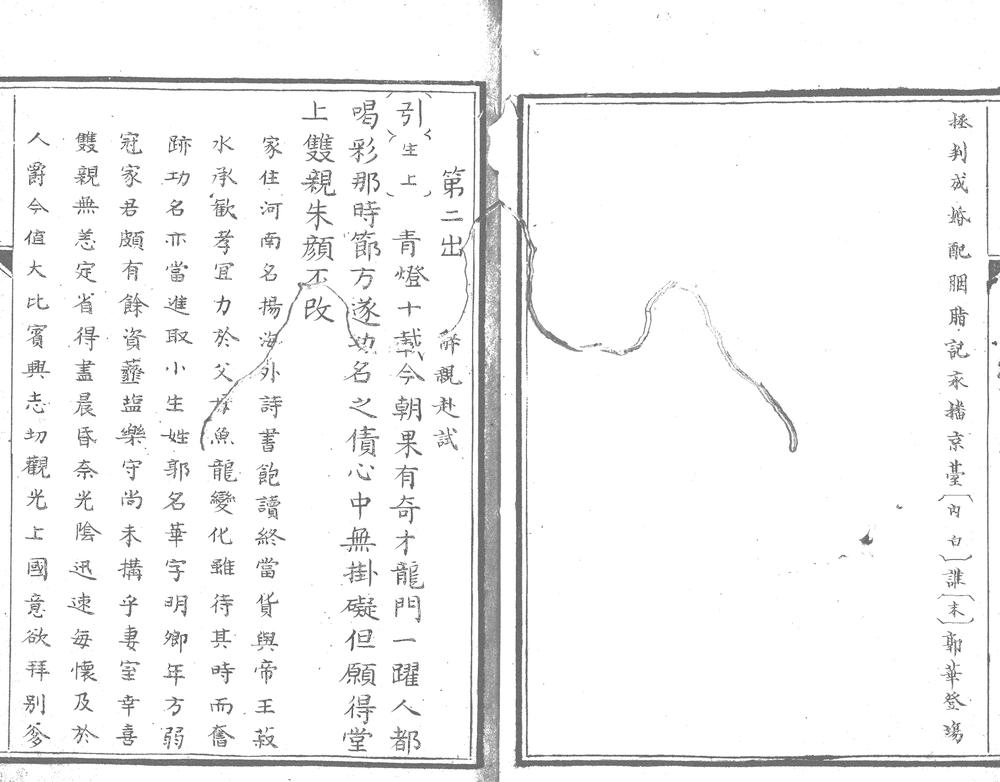 拯判成婚配胭脂記永播京臺（內白）誰（末）郭華登塲
第二出　辭親赴試
引（生上）青燈十載今朝果有奇才龍門一躍人都
喝彩那時節方遂功名之債心中無掛礙但願得堂
上雙親朱顏不改
家住河南名揚海外詩書飽讀終當貨與帝王菽
水承歡孝宜力於父母魚龍變化雖待其時而奮
跡功名亦當進取小生姓郭名華字明卿年方弱
冠家君頗有餘資虀塩樂守尚未搆乎妻室幸喜
雙親無恙定省得盡晨昏奈光陰迅速每懷及於
人爵今值大比賓興志切觀光上國意欲拜别爹